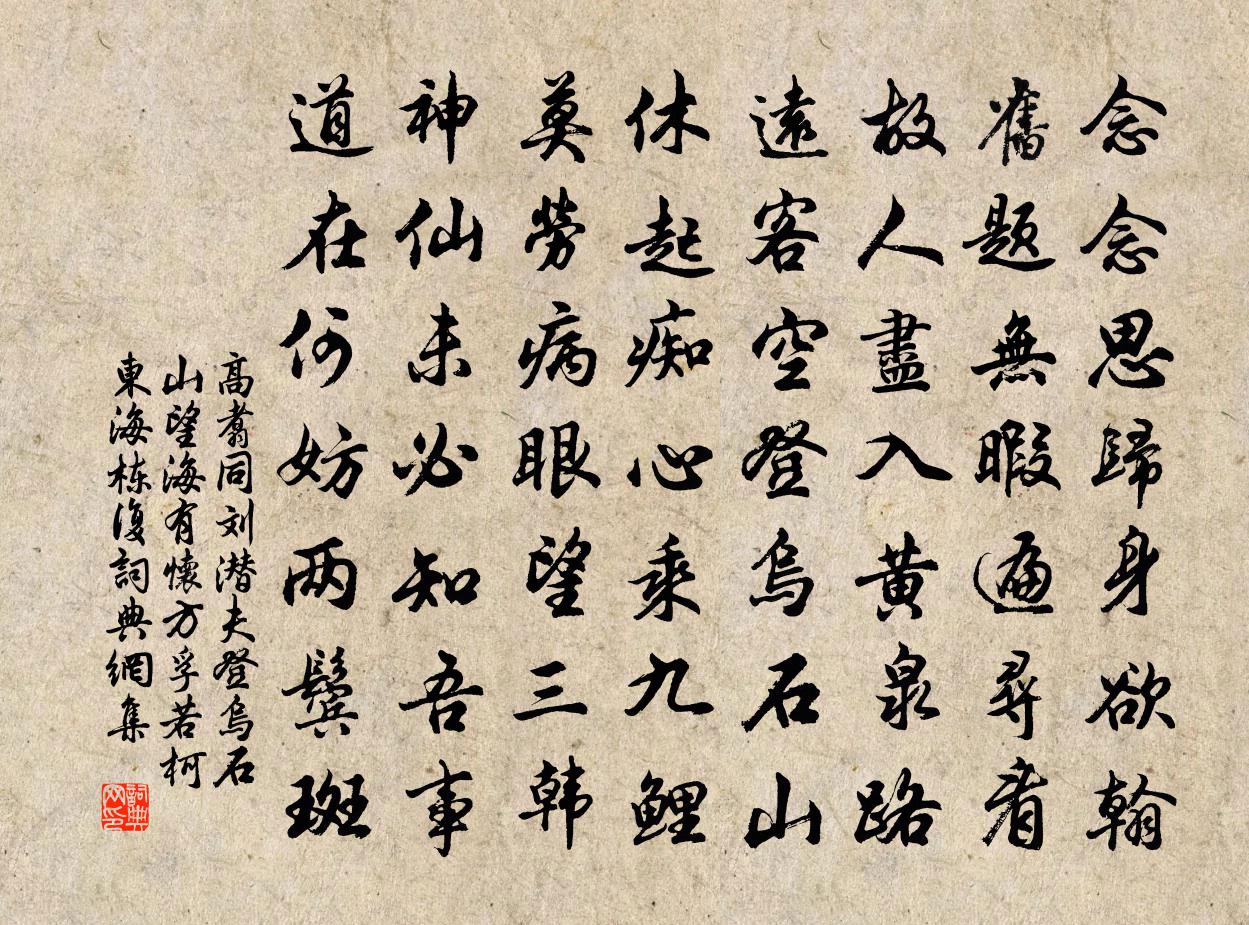 念念思歸身欲翰
舊題無暇遍尋看
故人盡入黄泉路
遠客空登烏石山
休起痴心乘九鯉
莫勞病眼望三韩
神仙未必知吾事
道在何妨两鬓斑
高翥同刘潜夫登烏石
山望海有懷方孚若柯
東海栋復詞典網集
詞典网印